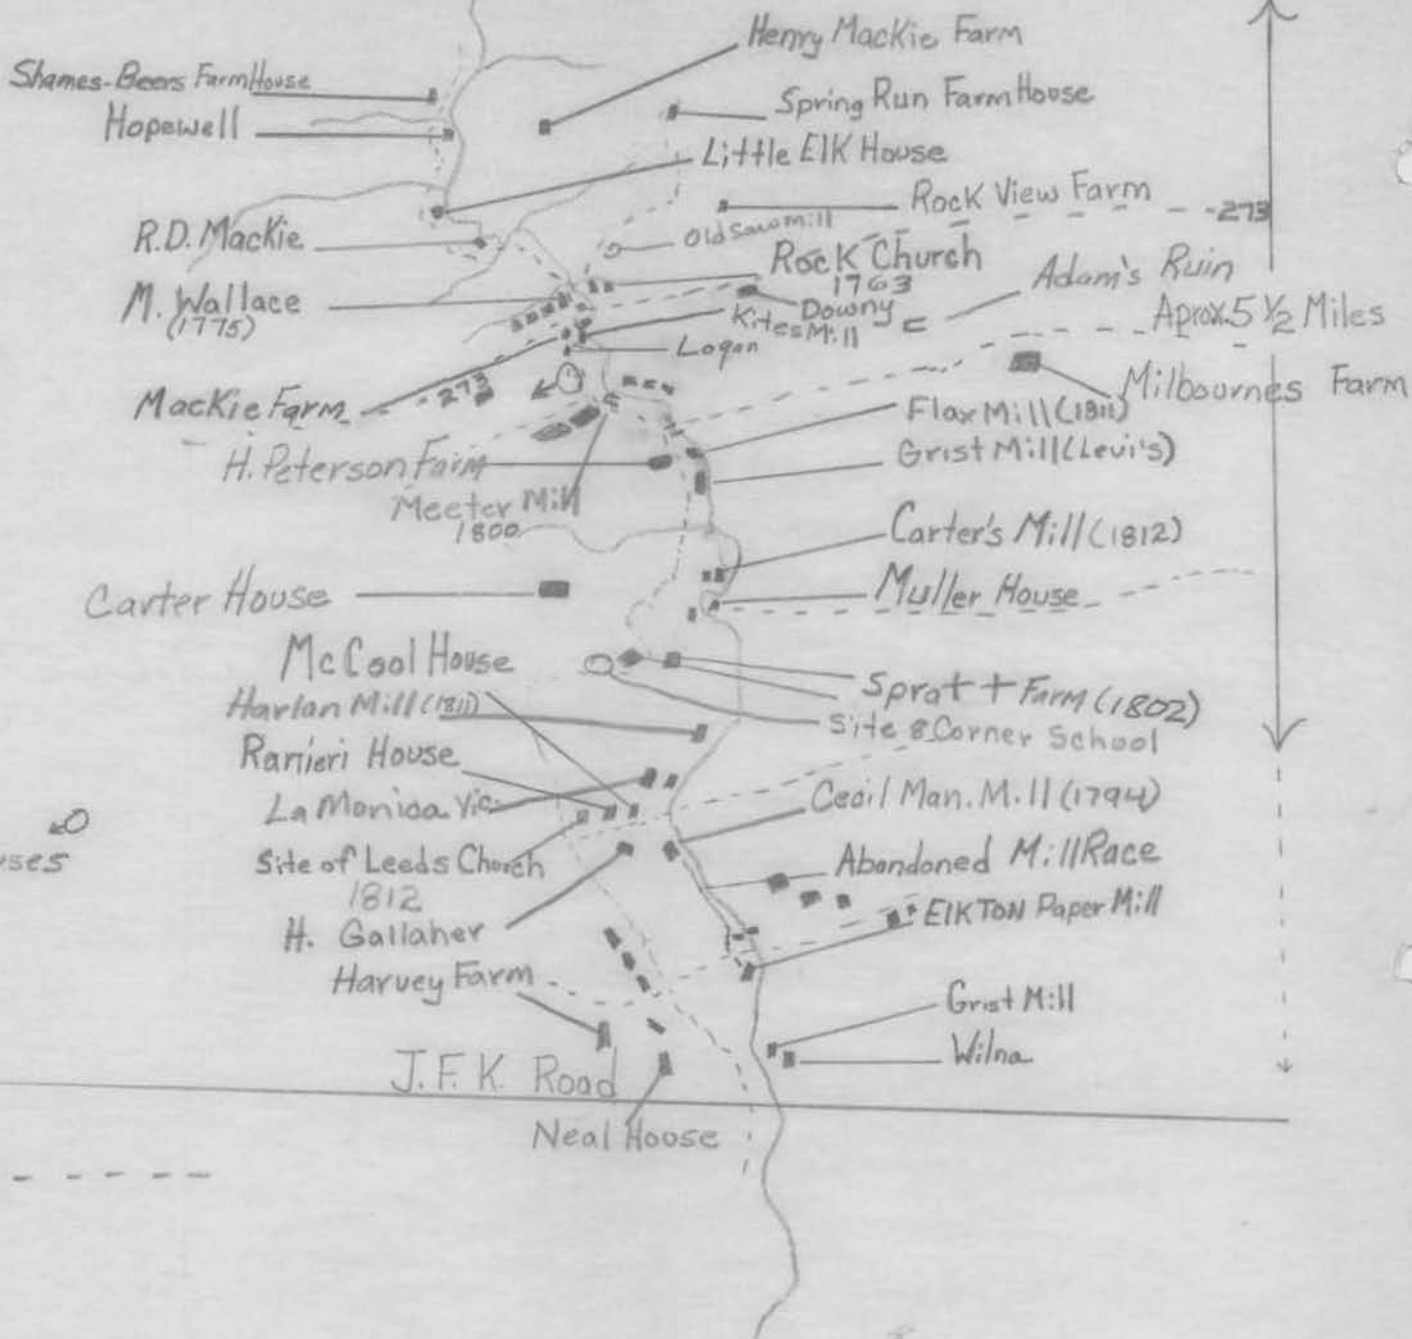 Henry MacKie Farm
Shames-Beers FarmHouse
Spring Run FarmHouse
Hopewell
Little Elk House
Rock View Farm
-273
R.D. MacKie
Old Sawmill
Rock Church
1763
Adam's Ruin
M. Wallace
(1775)
Downy
Kites Mill
Aprox. 5 1/2 Miles
Logan
273
MacKie Farm
Milbournes Farm
Flax Mill (1811)
Grist Mill (Levi's)
H. Peterson Farm
Meeter Mill
1800
Carter's Mill (1812)
Carter House
Muller House
McCool House
Spratt Farm (1802)
Harlan Mill (1811)
Site 8 Corner School
Ranieri House
La Monica Vic.
Cecil Man. Mill (1794)
uses
Site of Leeds Church
1812
Abandoned Mill Race
ElkTon Paper Mill
H. Gallaher
Harvey Farm
Grist Mill
Wilna
J.F.K. Road
Neal House